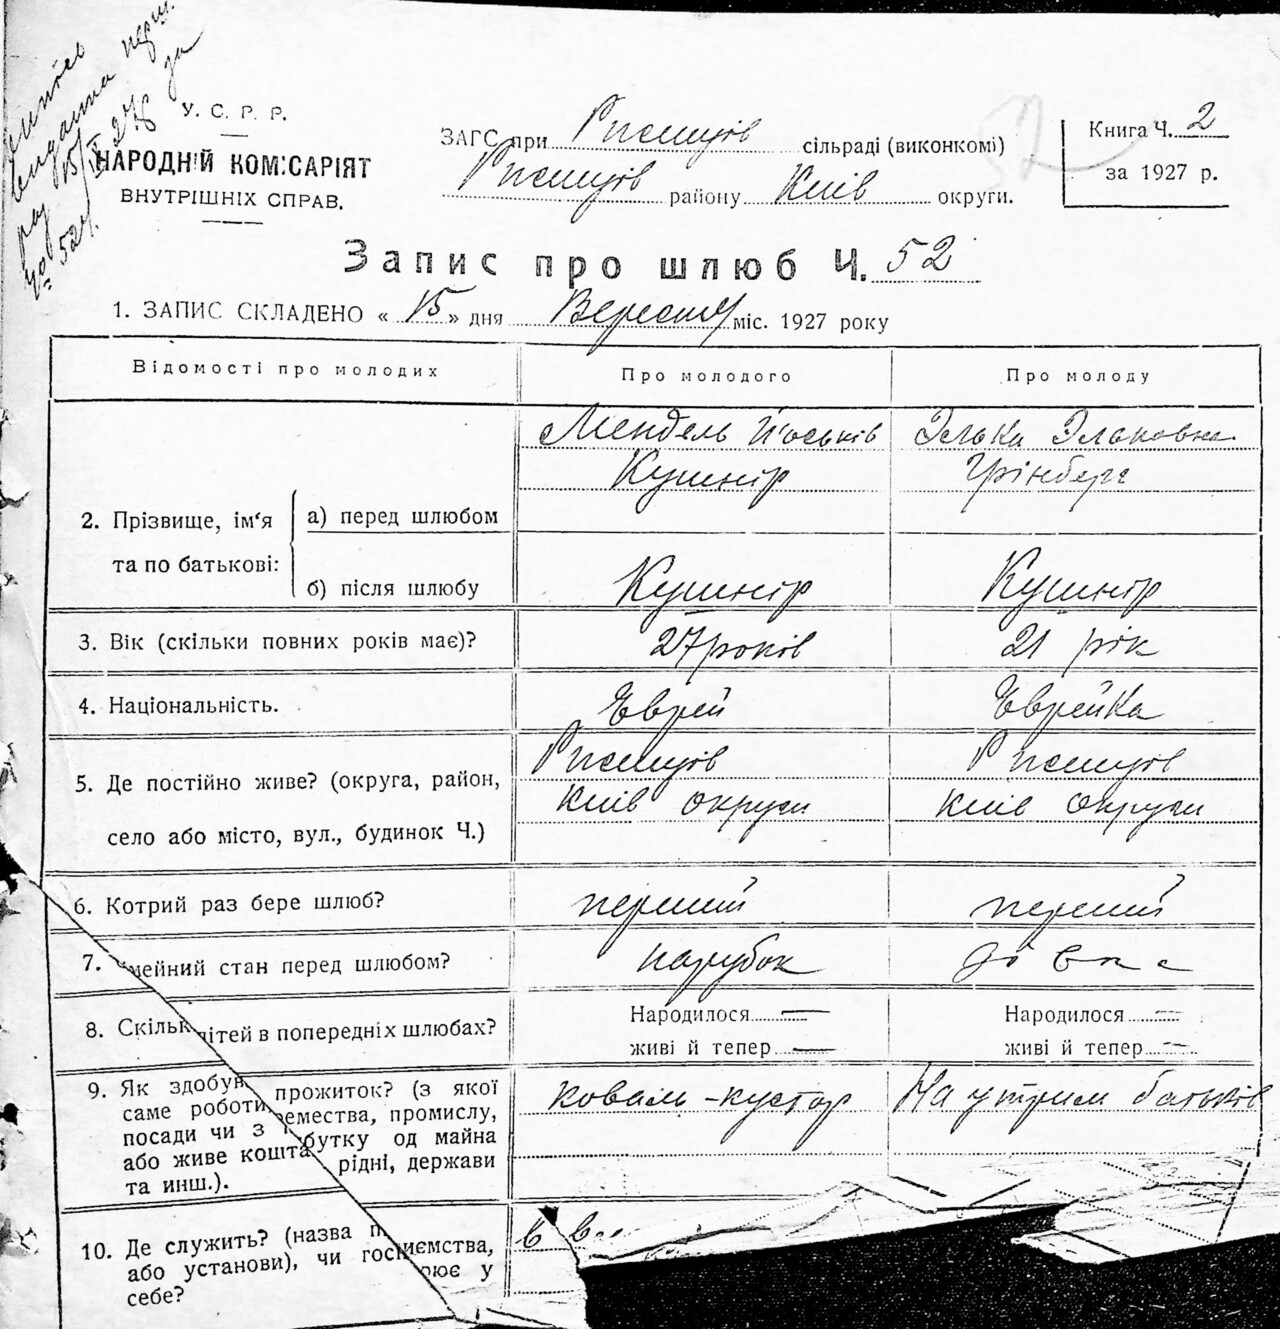 видана
15/IX 27 р. за
№ 52
У. С. Р. Р.
НАРОДНІЙ КОМІСАРІЯТ
ВНУТРІШНІХ СПРАВ.
ЗАГС при Ржищів сільраді (виконкомі)
Ржищів району Київ округи.
52
Книга Ч. 2
за 1927 р.
Запис про шлюб Ч. 52
1. ЗАПИС СКЛАДЕНО « 15 » дня Вересня міс. 1927 року
Відомості про молодих Про молодого Про молоду
Мендель Йоськів Элька Эльковна
Кушнір Грінберг
2. Прізвище, ім'я та по батькові:
а) перед шлюбом
б) після шлюбу Кушнір Кушнір
3. Вік (скільки повних років має)? 27 років 21 рік
4. Національність. Єврей Єврейка
5. Де постійно живе? (округа, район, Ржищів Ржищів
село або місто, вул., будинок Ч.) Київ округи Київ округи
6. Котрий раз бере шлюб? перший перший
7. мейний стан перед шлюбом? парубок дівка
8. Скільк ітей в попередніх шлюбах? Народилося — Народилося —
живі й тепер — живі й тепер —
9. Як здобув прожиток? (з якої коваль-кустар На утрим батьків
саме роботи, емества, промислу,
посади чи з бутку од майна
або живе кошта рідні, держави
та инш.).
10. Де служить? (назва п иємства,
або установи), чи госп рює у
себе?